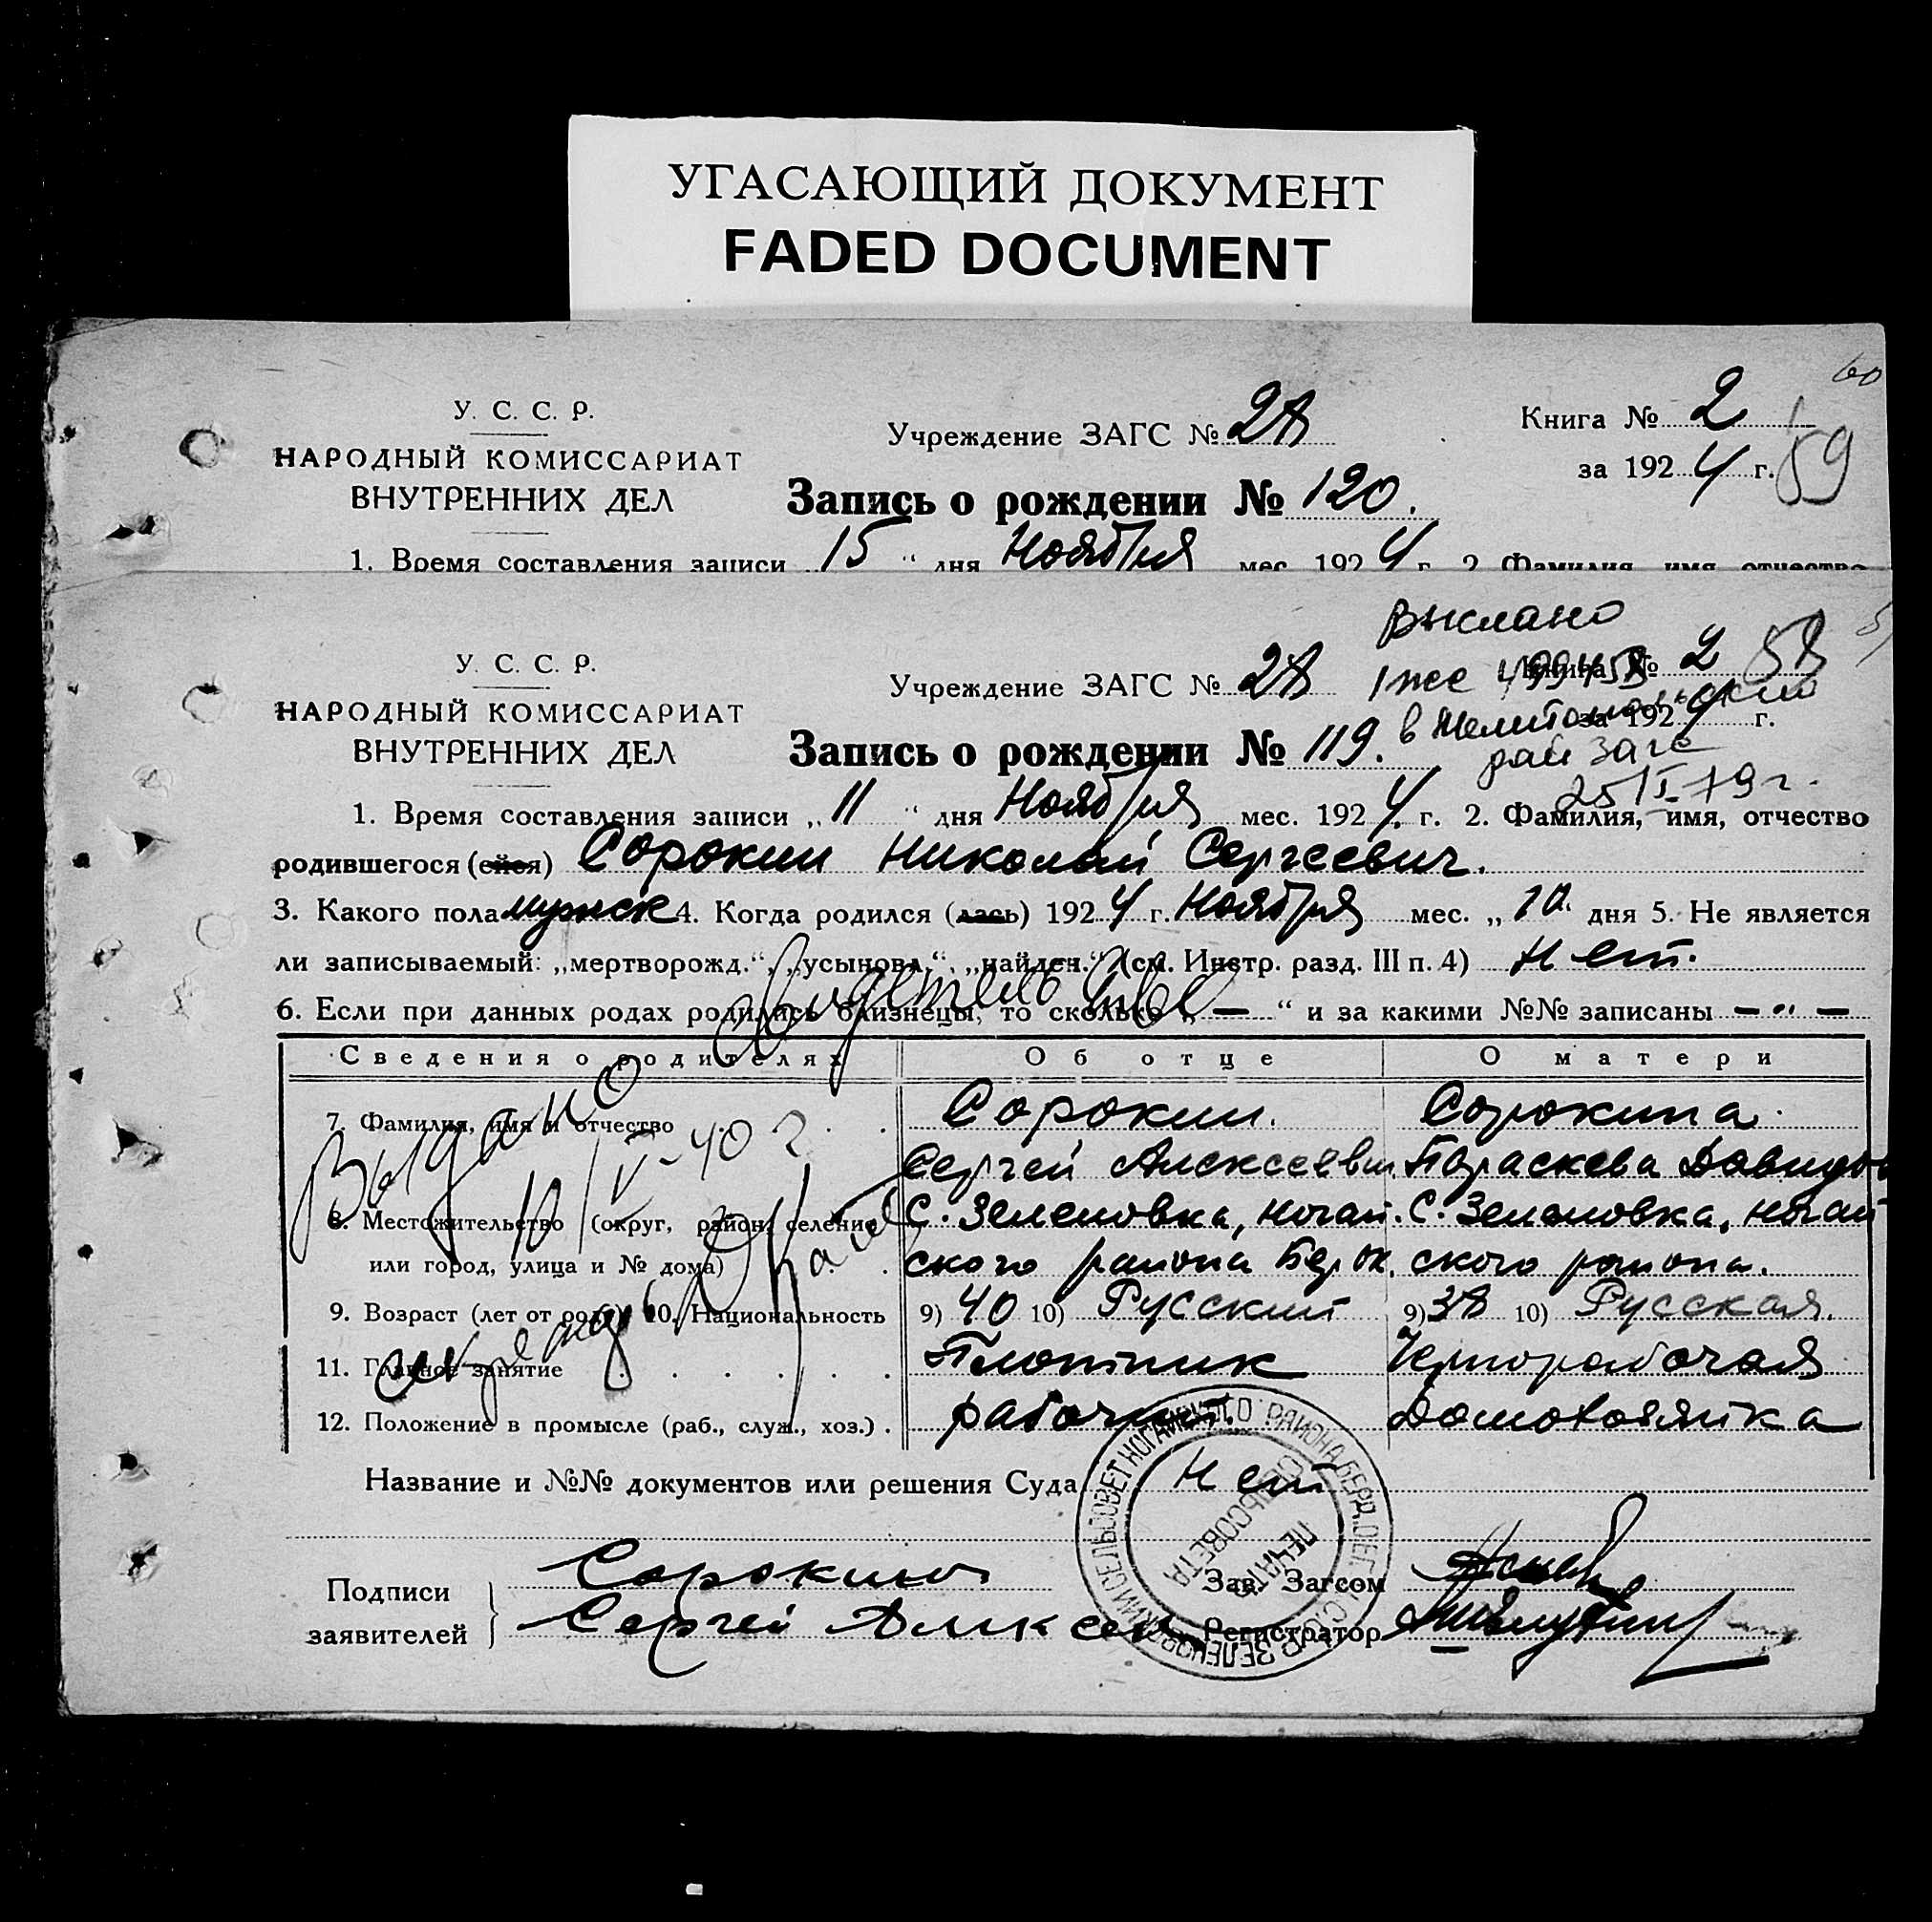 УГАСАЮЩИЙ ДОКУМЕНТ
FADED DOCUMENT
60
У. С. С. Р.
НАРОДНЫЙ КОМИССАРИАТ
ВНУТРЕННИХ ДЕЛ
Учреждение ЗАГС № 28
Книга № 2
за 1924 г.
59
Запись о рождении № 120.
1. Время составления записи 15 " дня Ноября мес. 1924 г. 2. Фамилия, имя, отчество
У. С. С. Р.
НАРОДНЫЙ КОМИССАРИАТ
ВНУТРЕННИХ ДЕЛ
Учреждение ЗАГС № 28
Книга № 2
58
за 1924 г.
Выслано
в Мелитопольский
рай загс
25/I-79 г.
Запись о рождении № 119.
1. Время составления записи „ 11 " дня Ноября мес. 1924 г. 2. Фамилия, имя, отчество
родившегося (ейся) Сорокин Николай Сергеевич.
3. Какого пола мужск 4. Когда родился (лась) 1924 г. Ноября мес. „ 10 дня 5. Не является
ли записываемый: „мертворожд.“, „усыновл.“, „найден.“ (см. Инстр. разд. III п. 4) Нет.
6. Если при данных родах родились близнецы, то сколько „ — “ и за какими №№ записаны — " —
Сведения о родителях Об отце О матери
7. Фамилия, имя и отчество Сорокин. Сорокина.
Сергей Алексеевич Параскева Давидов
8. Местожительство (округ, район, селение С. Зеленовка, Ногай- С. Зеленовка, Ногай
или город, улица и № дома) ского района Бердк. ского района.
9. Возраст (лет от роду) 10. Национальность 9) 40 10) Русский 9) 38 10) Русская.
11. Главное занятие Плотник Чернорабочая
12. Положение в промысле (раб., служ., хоз.) рабочий. Домохозяйка
Выдано свидетельство
10/V-40 г.
Название и №№ документов или решения Суда Нет
Подписи
заявителей
Сорокин
Сергей Алексе
ПЕЧАТЬ
СЕЛЬСОВЕТА
Зав. Загсом
Регистратор